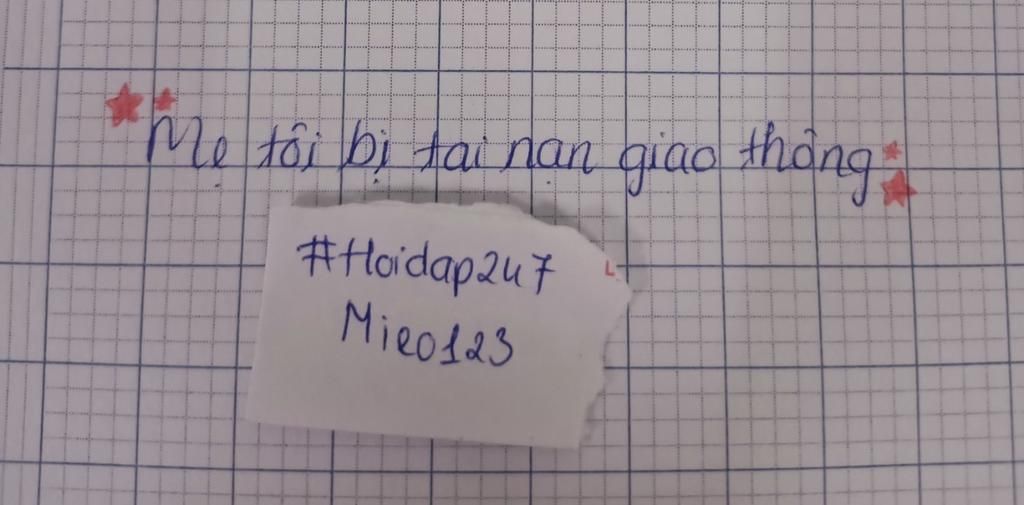 Mẹ tôi bị tai nạn giao thông
#Hoidap247
Mieo123